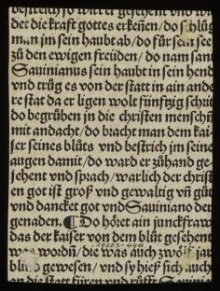 der die kraft gottes erkeñen/ do schlůg
man im sein haubt ab/ do für sein seel
zů den ewigen freüden/ do nam sant
Sauinianus sein haubt in sein hend
vnd trůg es von der statt in ain ande
re stat da er ligen wolt fünfzig schrit
do begrůben in die christen menschen
mit andacht/ do bracht man dem kai
ser seines blůts vnd bestrich im seine
augen damit/ do ward er zůhand ge
sehent vnd sprach/ warlich der christ
en got ist groß vnd gewaltig vñ gůt
vnd dancket got vnd Sauiniano der
genaden. ¶ Do höret ain junckfraw
das der kaiser von dem blůt gesehent
wz wordñ/ die was auch zwölf jar
blind gewesen/ vnd sy hieß sich auch